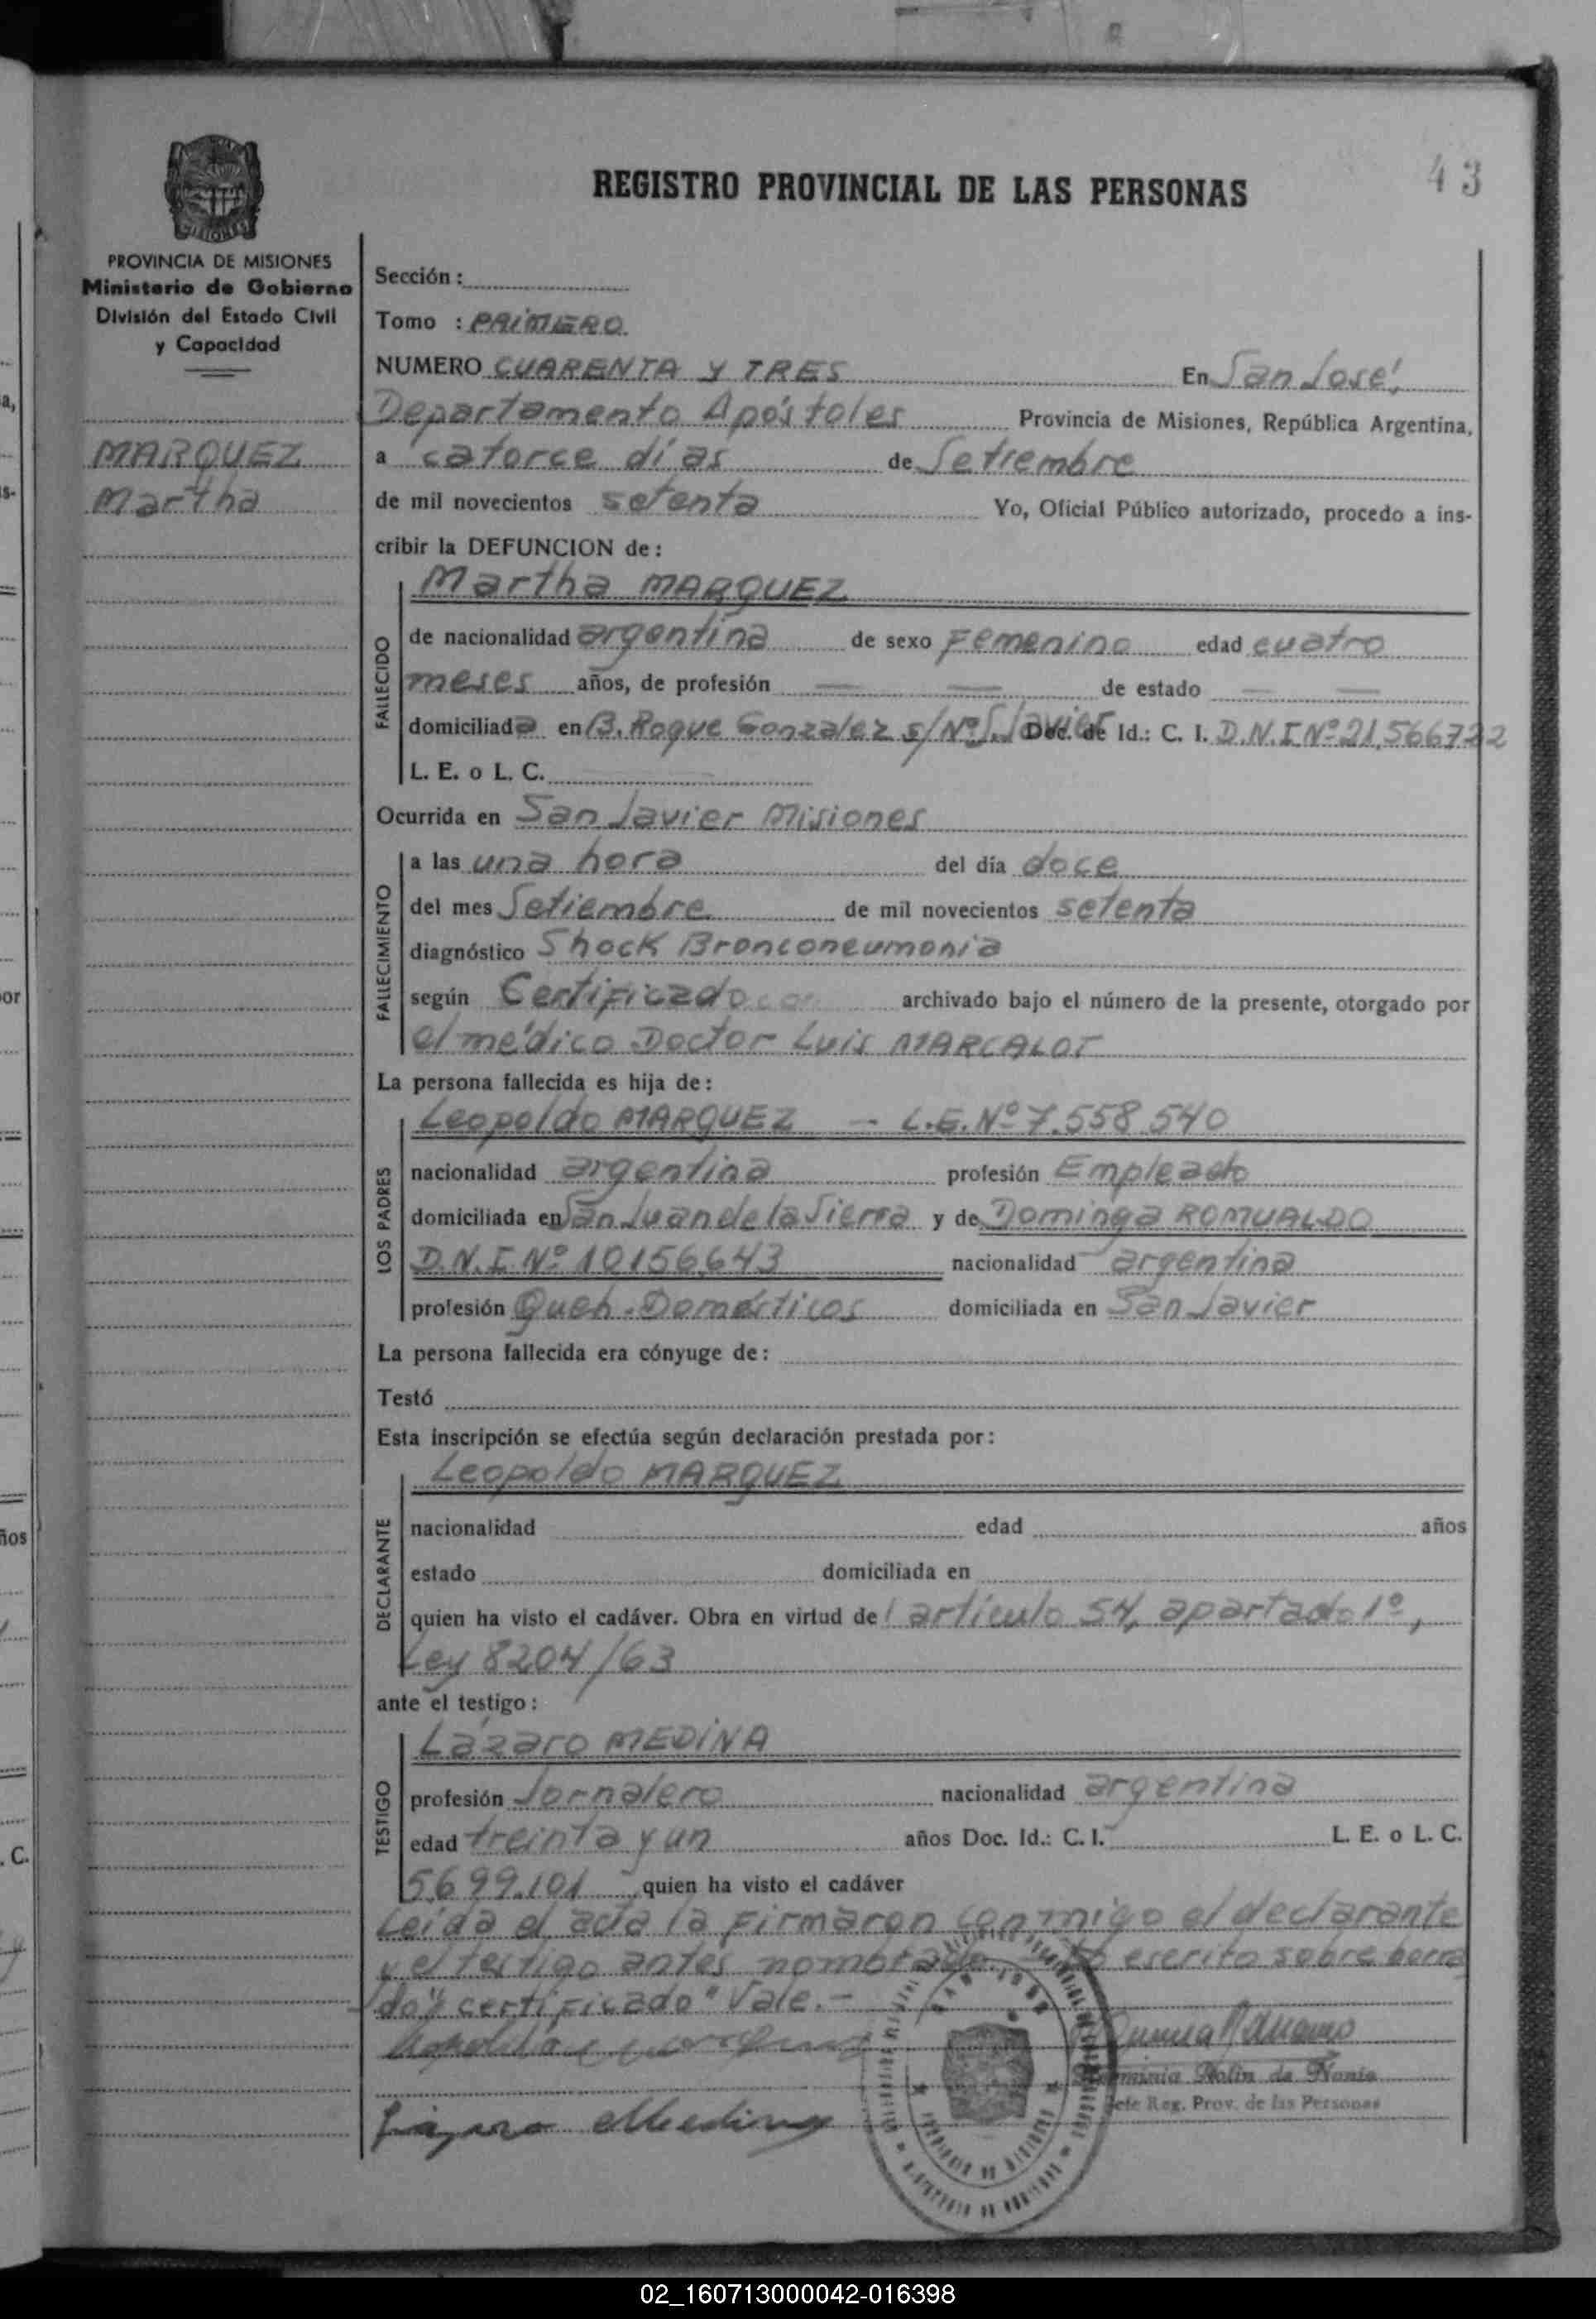 43
REGISTRO PROVINCIAL DE LAS PERSONAS
MISIONES
PROVINCIA DE MISIONES
Ministerio de Gobierno
División del Estado Civil
y Capacidad
MARQUEZ
Martha
Sección :
Tomo : PRIMERO
NUMERO CUARENTA Y TRES En San José,
Departamento Apóstoles Provincia de Misiones, República Argentina,
a catorce días de Setiembre
de mil novecientos setenta Yo, Oficial Público autorizado, procedo a ins-
cribir la DEFUNCION de :
FALLECIDO
Martha MARQUEZ
de nacionalidad argentina de sexo Femenino edad cuatro
meses años, de profesión — — de estado — —
domiciliada en B. Roque Gonzalez s/Nº S. Javier Doc. de Id.: C. I. D.N.I Nº 21,566722
L. E. o L. C.
Ocurrida en San Javier Misiones
FALLECIMIENTO
a las una hora del día doce
del mes Setiembre de mil novecientos setenta
diagnóstico Shock Bronconeumonia
según Certificado archivado bajo el número de la presente, otorgado por
el médico Doctor Luis MARCALOT
La persona fallecida es hija de :
LOS PADRES
Leopoldo MARQUEZ — L.E. Nº 7.558.540
nacionalidad argentina profesión Empleado
domiciliada en San Juan de la Sierra y de Dominga ROMUALDO
D.N.I Nº 10156,643 nacionalidad argentina
profesión Queh. Domésticos domiciliada en San Javier
La persona fallecida era cónyuge de :
Testó
Esta inscripción se efectúa según declaración prestada por :
DECLARANTE
Leopoldo MARQUEZ
nacionalidad edad años
estado domiciliada en
quien ha visto el cadáver. Obra en virtud del articulo 54, apartado 1º,
Ley 8204/63
ante el testigo :
TESTIGO
Lázaro MEDINA
profesión Jornalero nacionalidad argentina
edad treinta y un años Doc. Id.: C. I. L. E. o L. C.
5.699.101 quien ha visto el cadáver
Leída el acta la firmaron conmigo el declarante
y el testigo antes nombrado escrito sobre borra
do "certificado" Vale.—
Lázaro Medina
Jefe Reg. Prov. de las Personas
02_160713000042-016398